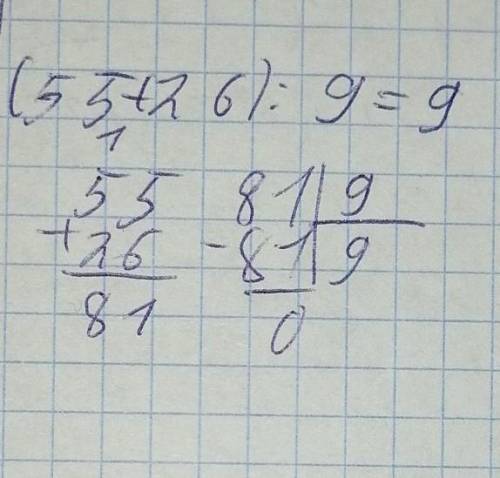 (55+26): 9=9
1
55 81|9
+26 -81|9
81 0